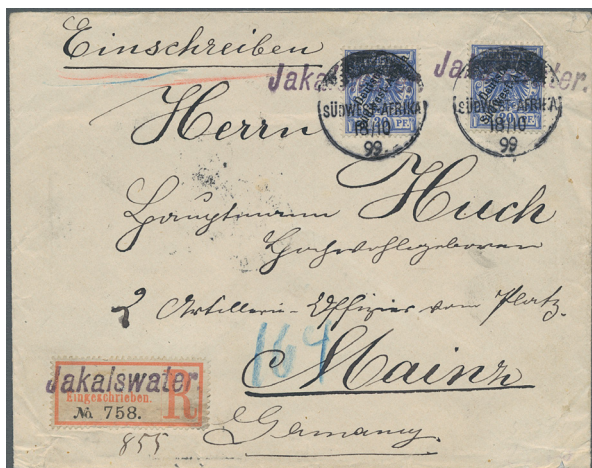 Einschreiben
Jakalswater.
SÜDWEST-AFRIKA
18/10
99
SÜDWEST-AFRIKA
18/10
99
20 PF.
Herrn
Hauptmann Huch
Hochwohlgeboren
2 Artillerie-Offizier vom Platz.
164
Mainz
Germany.
Jakalswater.
Eingeschrieben.
R
№ 758.
855